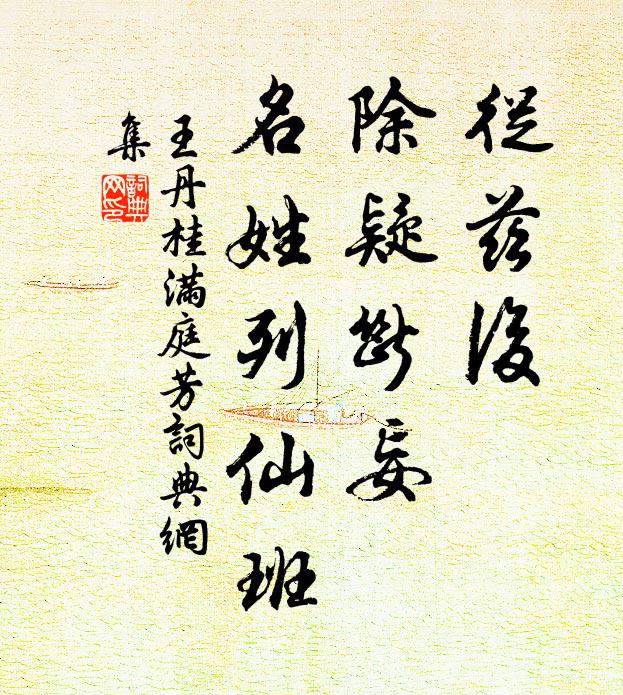 從茲後
除疑斷妄
名姓列仙班
王丹桂滿庭芳詞典網
集
詞典
网印